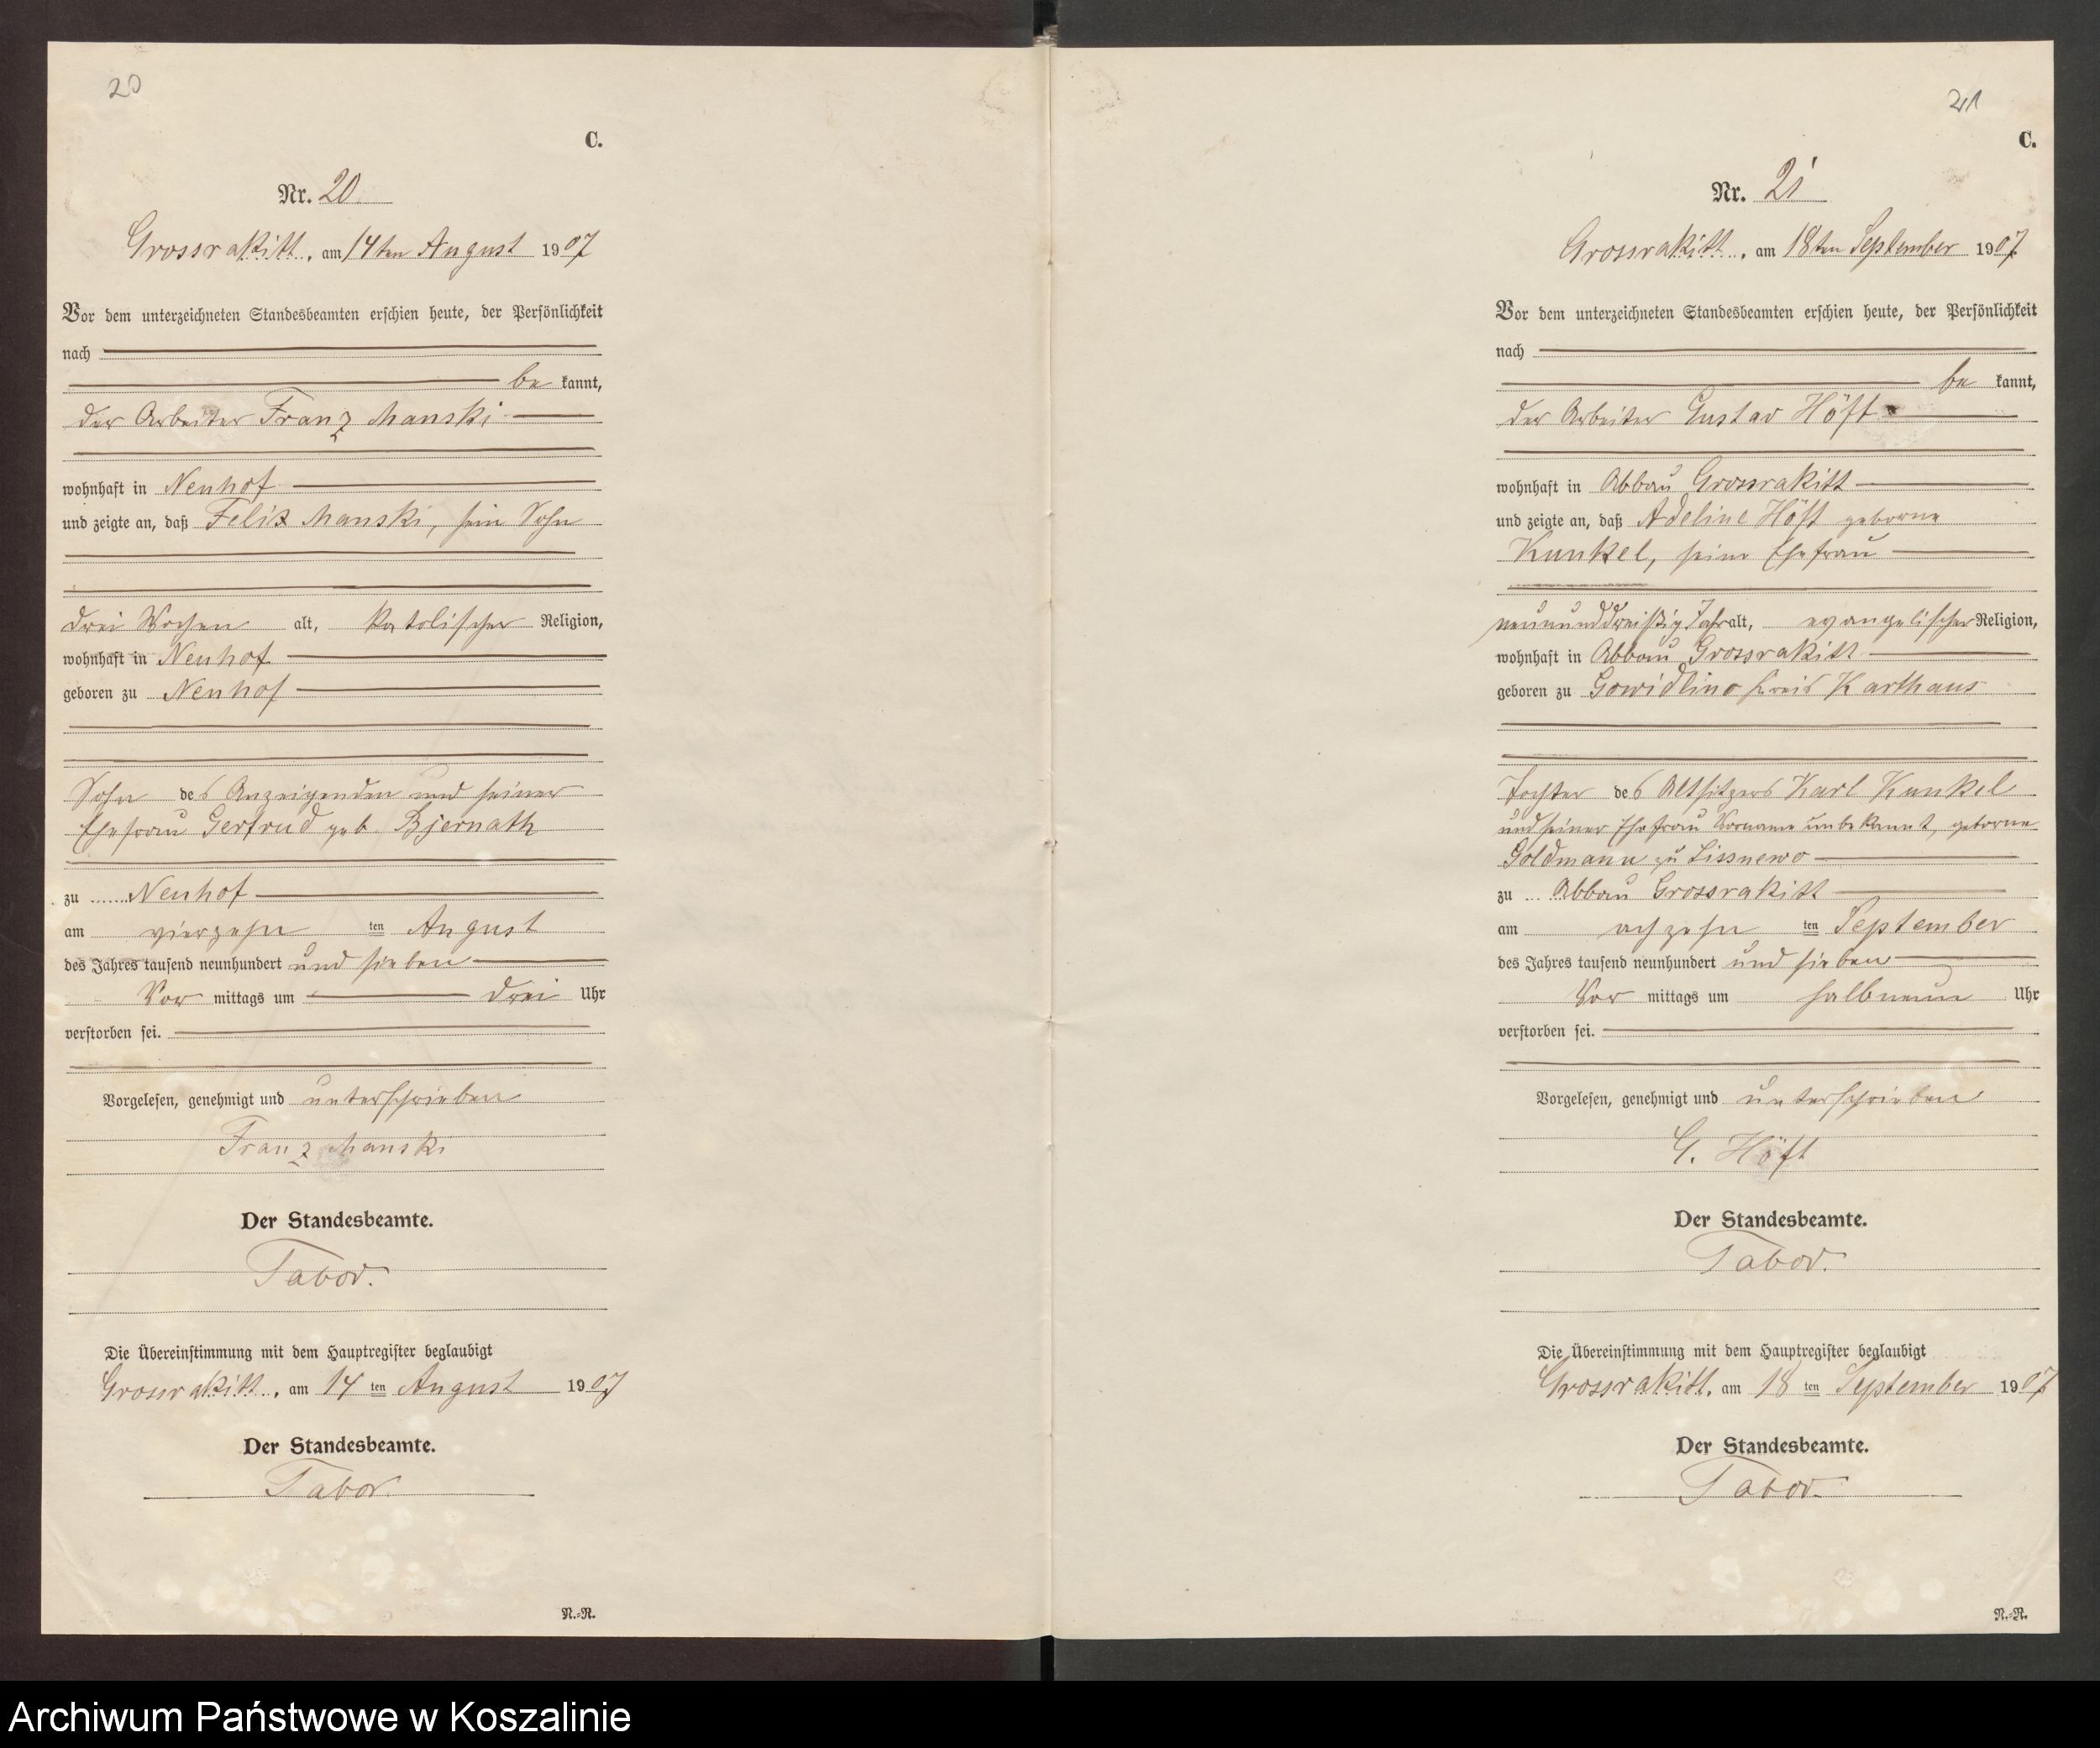 20
C.
Nr. 20
Grossrakitt, am 14ten August 1907
Vor dem unterzeichneten Standesbeamten erschien heute, der Persönlichkeit
nach
be kannt,
der Arbeiter Franz Manski
wohnhaft in Neuhof
und zeigte an, daß Felix Manski, sein Sohn
drei Wochen alt, katolischer Religion,
wohnhaft in Neuhof
geboren zu Neuhof
Sohn des Anzeigenden und seiner
Ehefrau Gertrud geb. Bjernath
zu Neuhof
am vierzehn ten August
des Jahres tausend neunhundert und sieben
Vor mittags um drei Uhr
verstorben sei.
Vorgelesen, genehmigt und unterschrieben
Franz Manski
Der Standesbeamte.
Tabor.
Die Übereinstimmung mit dem Hauptregister beglaubigt
Grossrakitt, am 14 ten August 1907
Der Standesbeamte.
Tabor.
N.-R.
21
C.
Nr. 21
Grossrakitt, am 18ten September 1907
Vor dem unterzeichneten Standesbeamten erschien heute, der Persönlichkeit
nach
be kannt,
der Arbeiter Gustav Höft
wohnhaft in Abbau Grossrakitt
und zeigte an, daß Adeline Höft geborne
Kunkel, seine Ehefrau
neununddreißig Jahr alt, evangelischer Religion,
wohnhaft in Abbau Grossrakitt
geboren zu Gowidlino Kreis Karthaus
Tochter des Altsitzers Karl Kunkel
und seiner Ehefrau Vorname unbekannt, geborne
Goldmann zu Lissnewo
zu Abbau Grossrakitt
am achzehn ten September
des Jahres tausend neunhundert und sieben
Vor mittags um halbneun Uhr
verstorben sei.
Vorgelesen, genehmigt und unterschrieben
G. Höft
Der Standesbeamte.
Tabor.
Die Übereinstimmung mit dem Hauptregister beglaubigt
Grossrakitt, am 18 ten September 1907
Der Standesbeamte.
Tabor.
N.-R.
Archiwum Państwowe w Koszalinie